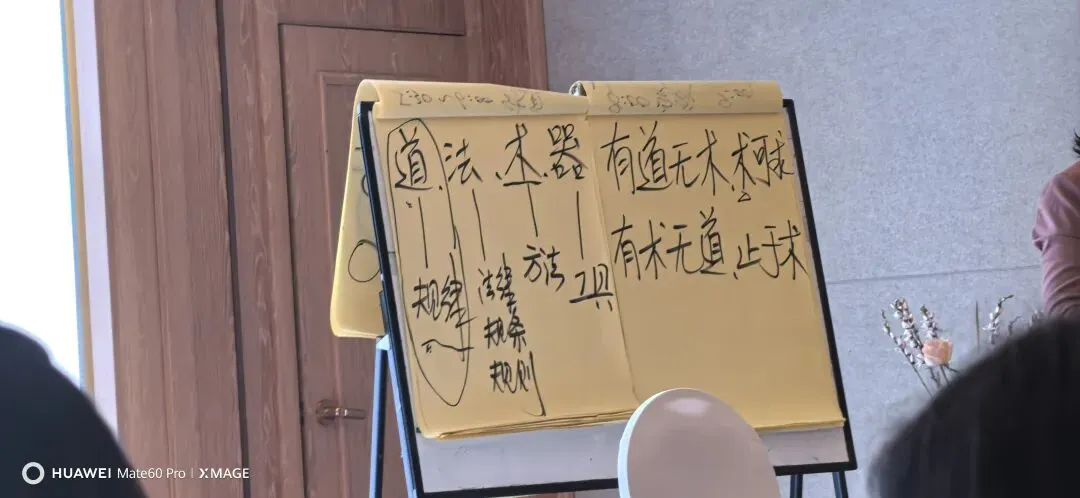 道、法、术、器
规律
法律
规条
规则
方法
工具
有道无术,术可求
有术无道,止于术
HUAWEI Mate60 Pro | XMAGE